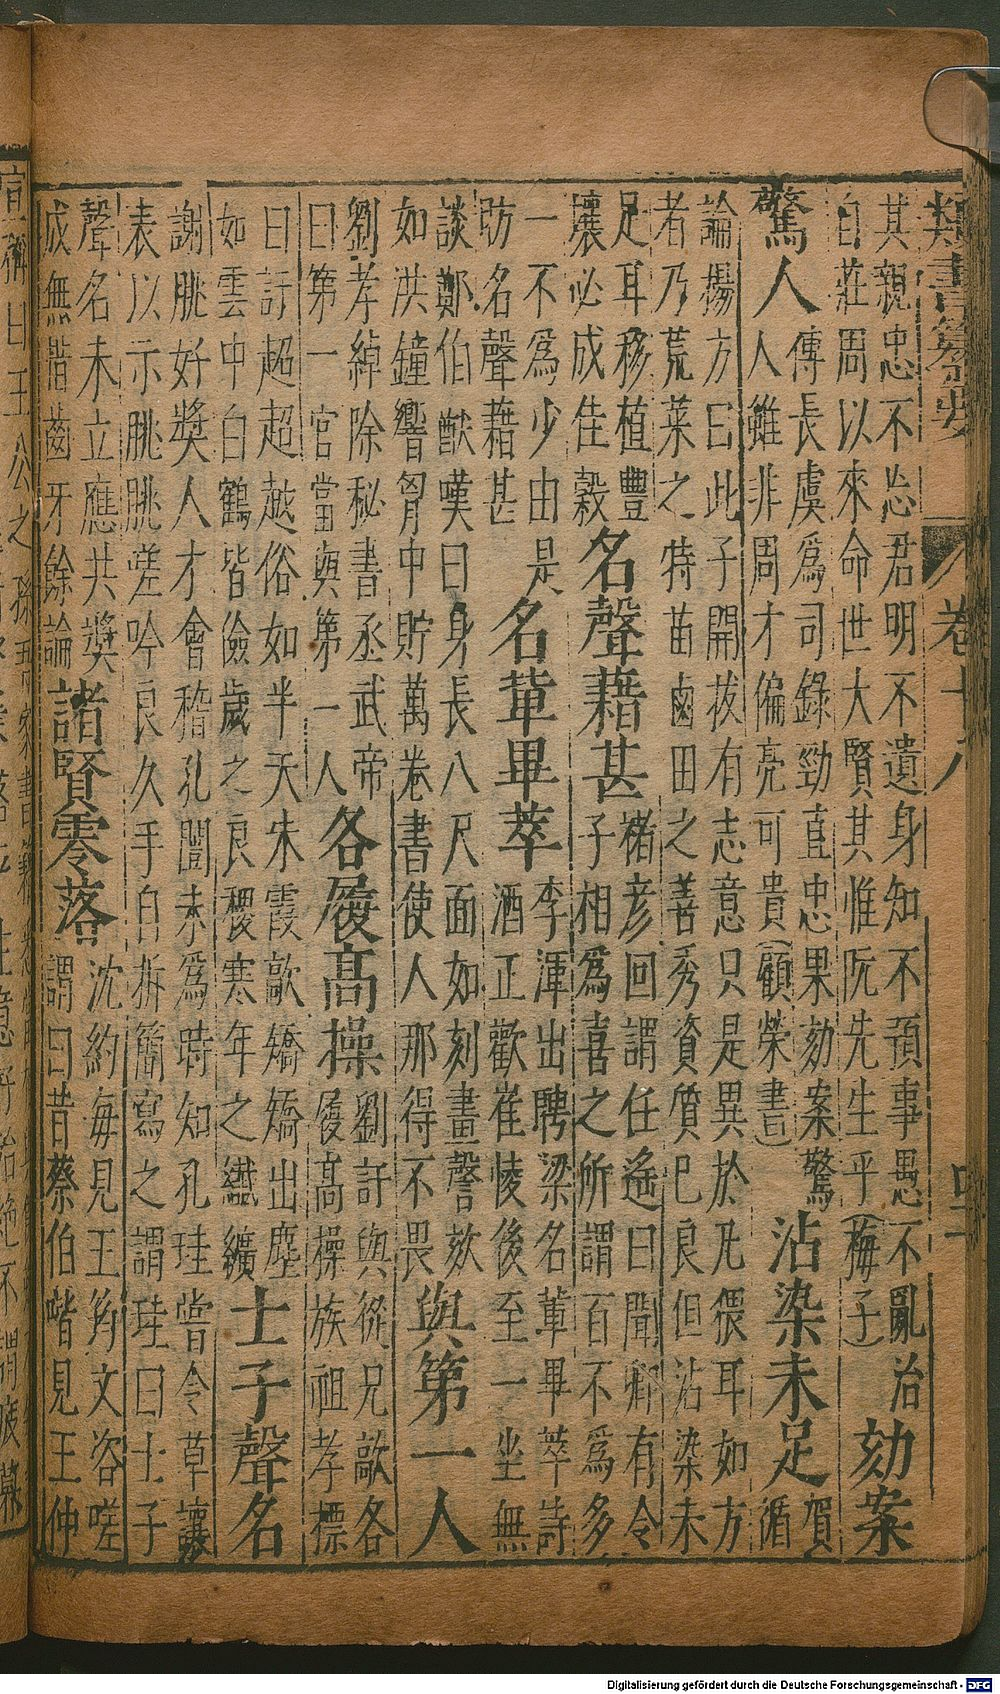 類書纂要 卷十八
其親忠不忘君明不遺身知不預事愚不亂治
自莊周以來命世大賢其惟阮先生乎（梅子）
劾案
驚人
傅長虞為司錄勁直忠果劾案驚
人人雖非周才偏亮可貴（顧榮書）
沾染未足
賀
循
論楊方曰此子開拔有志意只是異於凡猥耳如方
者乃荒萊之特苗鹵田之善秀資質已良但沾染未
足耳移植豐
壤必成佳穀
名聲藉甚
褚彥回謂任遙曰聞卿有令
子相為喜之所謂百不為多
一不為少由是
昉名聲藉甚
名輩畢萃
李渾出聘梁名輩畢萃詩
酒正歡崔㥄後至一坐無
談鄭伯猷嘆曰身長八尺面如刻畫謦欬
如洪鐘響胷中貯萬卷書使人那得不畏
與第一人
劉孝綽除秘書丞武帝
曰第一官當與第一人
各履高操
劉訏與從兄歊各
履高操族祖孝標
曰訏超超越俗如半天朱霞歊矯矯出塵
如雲中白鶴皆儉歲之良稷寒年之纖纊
士子聲名
謝朓好獎人才會稽孔闓未為時知孔珪嘗令草讓
表以示朓朓嗟吟良久手自折簡寫之謂珪曰士子
聲名未立應共獎
成無惜齒牙餘論
諸賢零落
沈約每見王筠文咨嗟
謂曰昔蔡伯喈見王仲
宣稱曰王公之孫吾家書籍
Digitalisierung gefördert durch die Deutsche Forschungsgemeinschaft - DFG